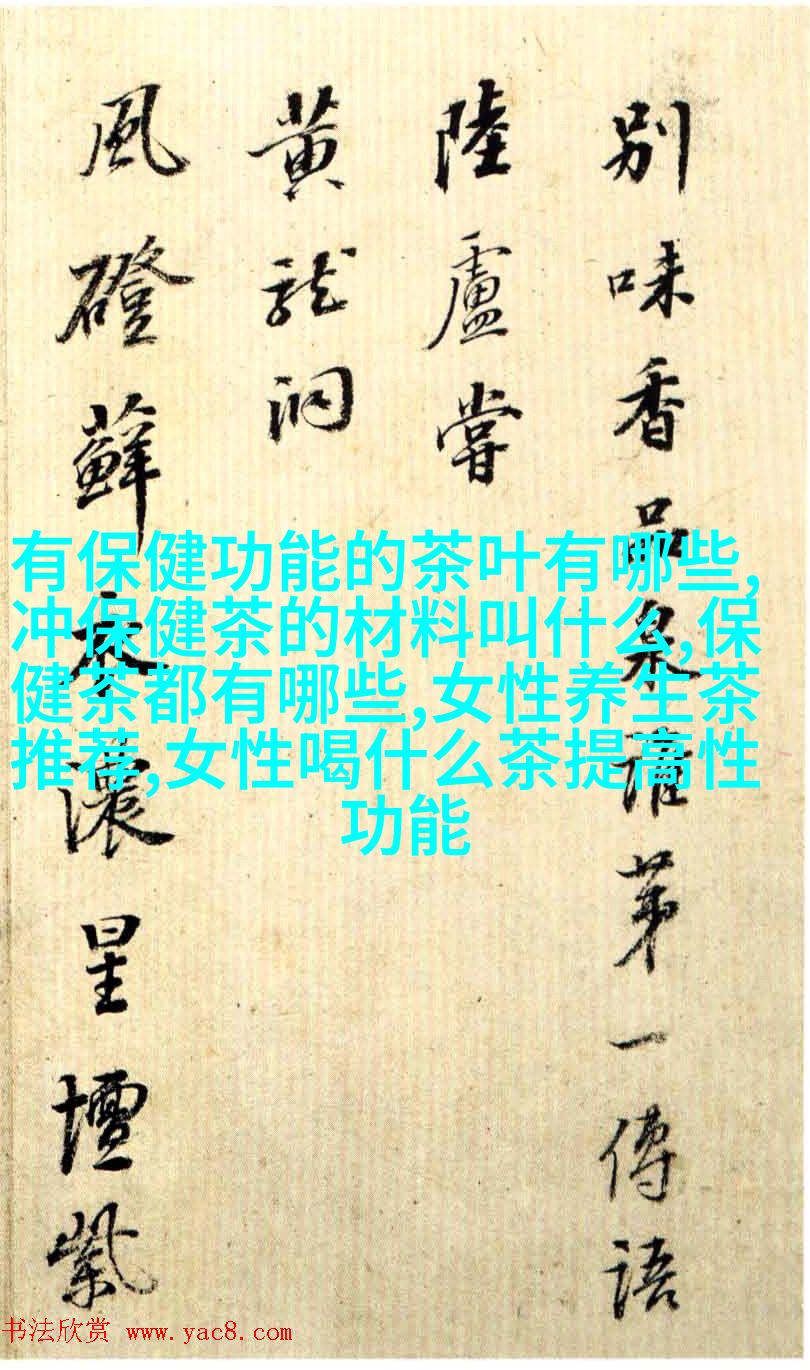 别味香品泉誰第一傳語
陸盧嘗
黄龍洞
風磴蘚衣濃星壇紫
有保健功能的茶叶有哪些,
冲保健茶的材料叫什么,保
健茶都有哪些,女性养生茶
推荐,女性喝什么茶提高性
功能
书法欣赏 www.yac8.com